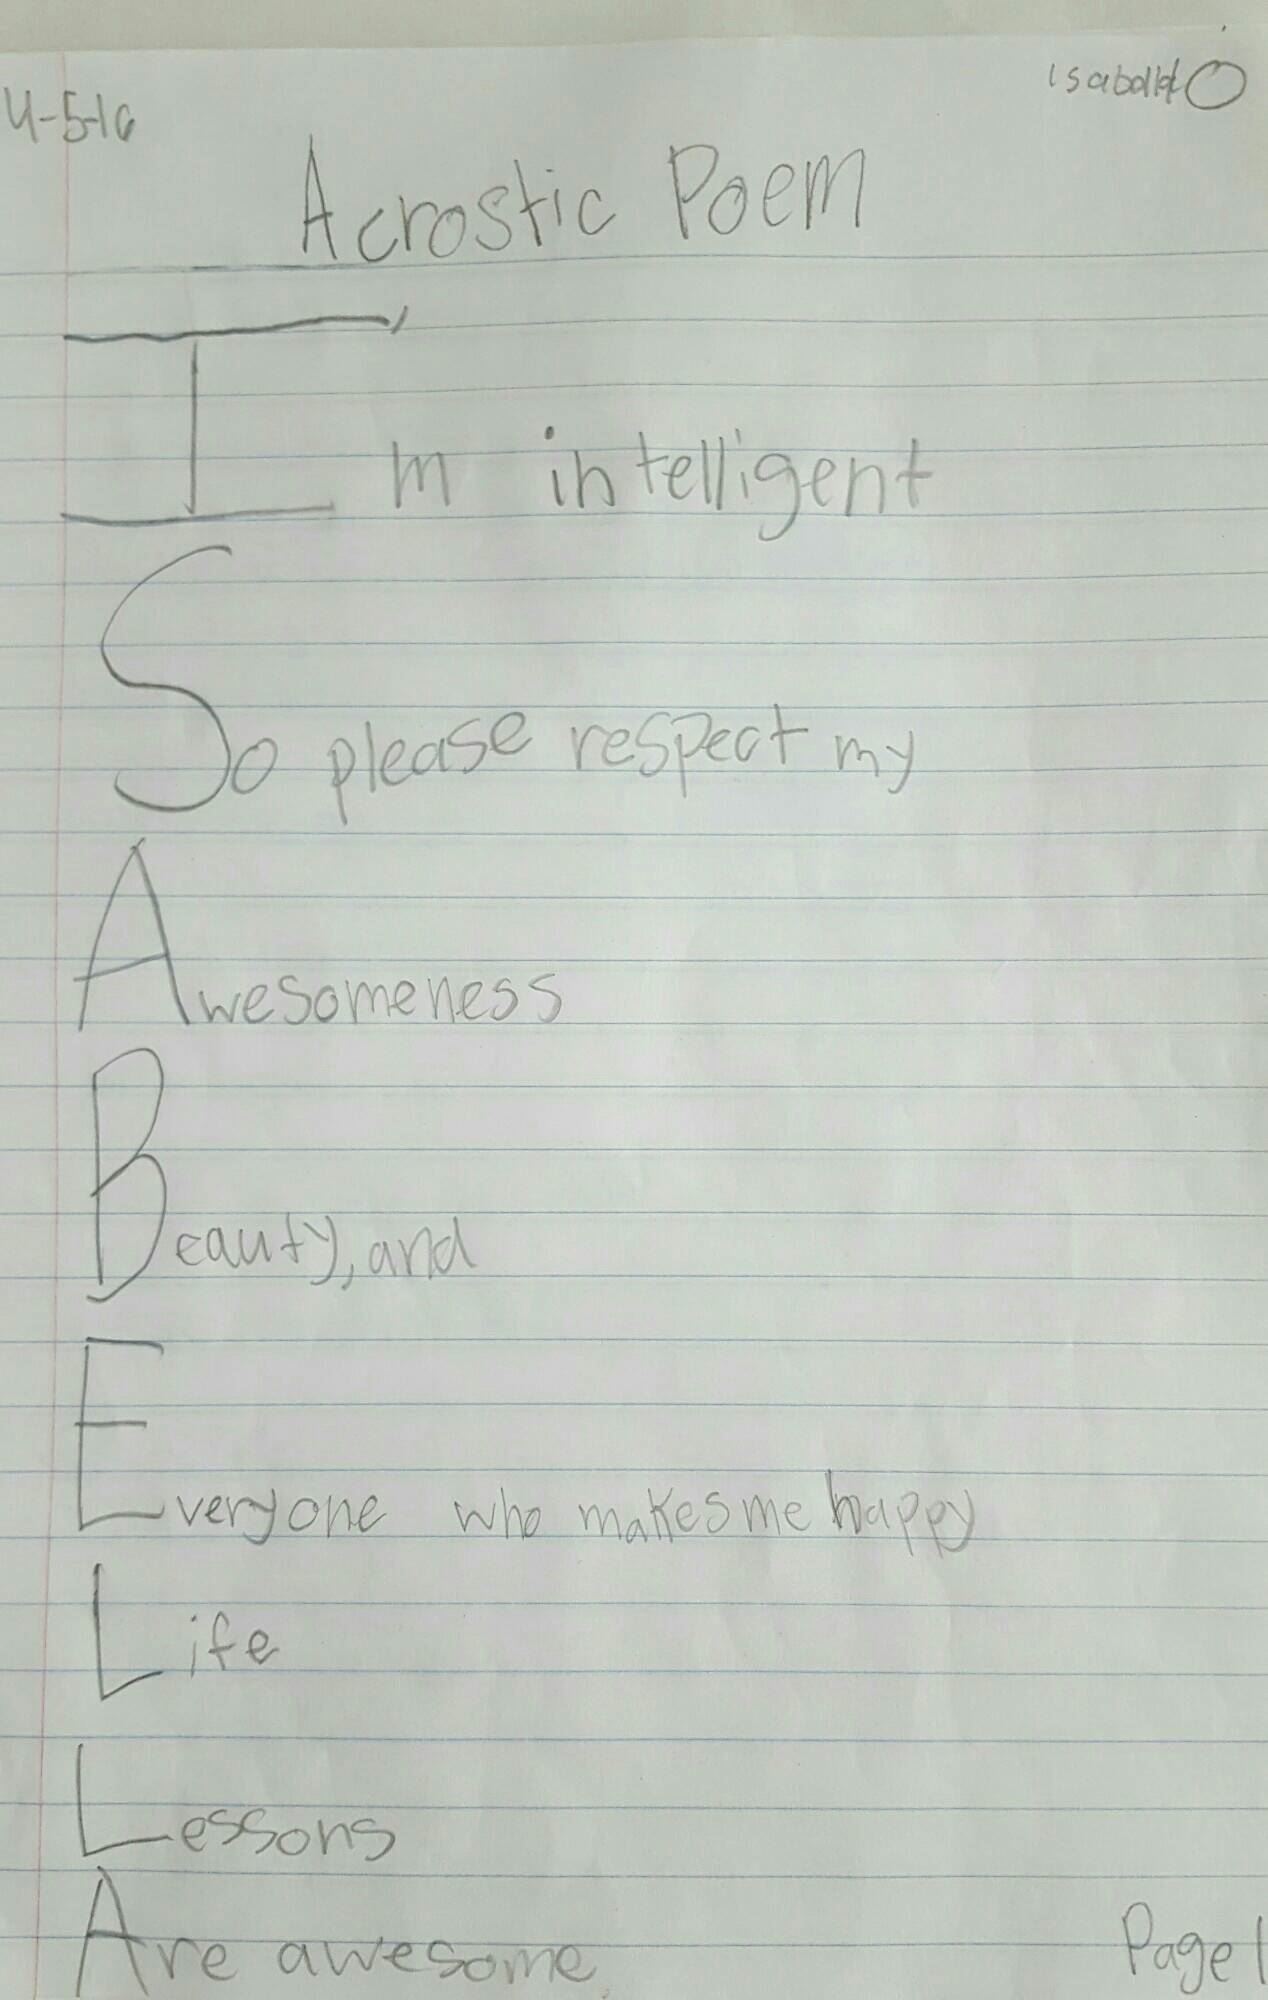 4-5-16
Acrostic Poem
I'm intelligent
So please respect my
Awesomeness
Beauty, and
Everyone who makes me happy
Life
Lessons
Are awesome
Page 1